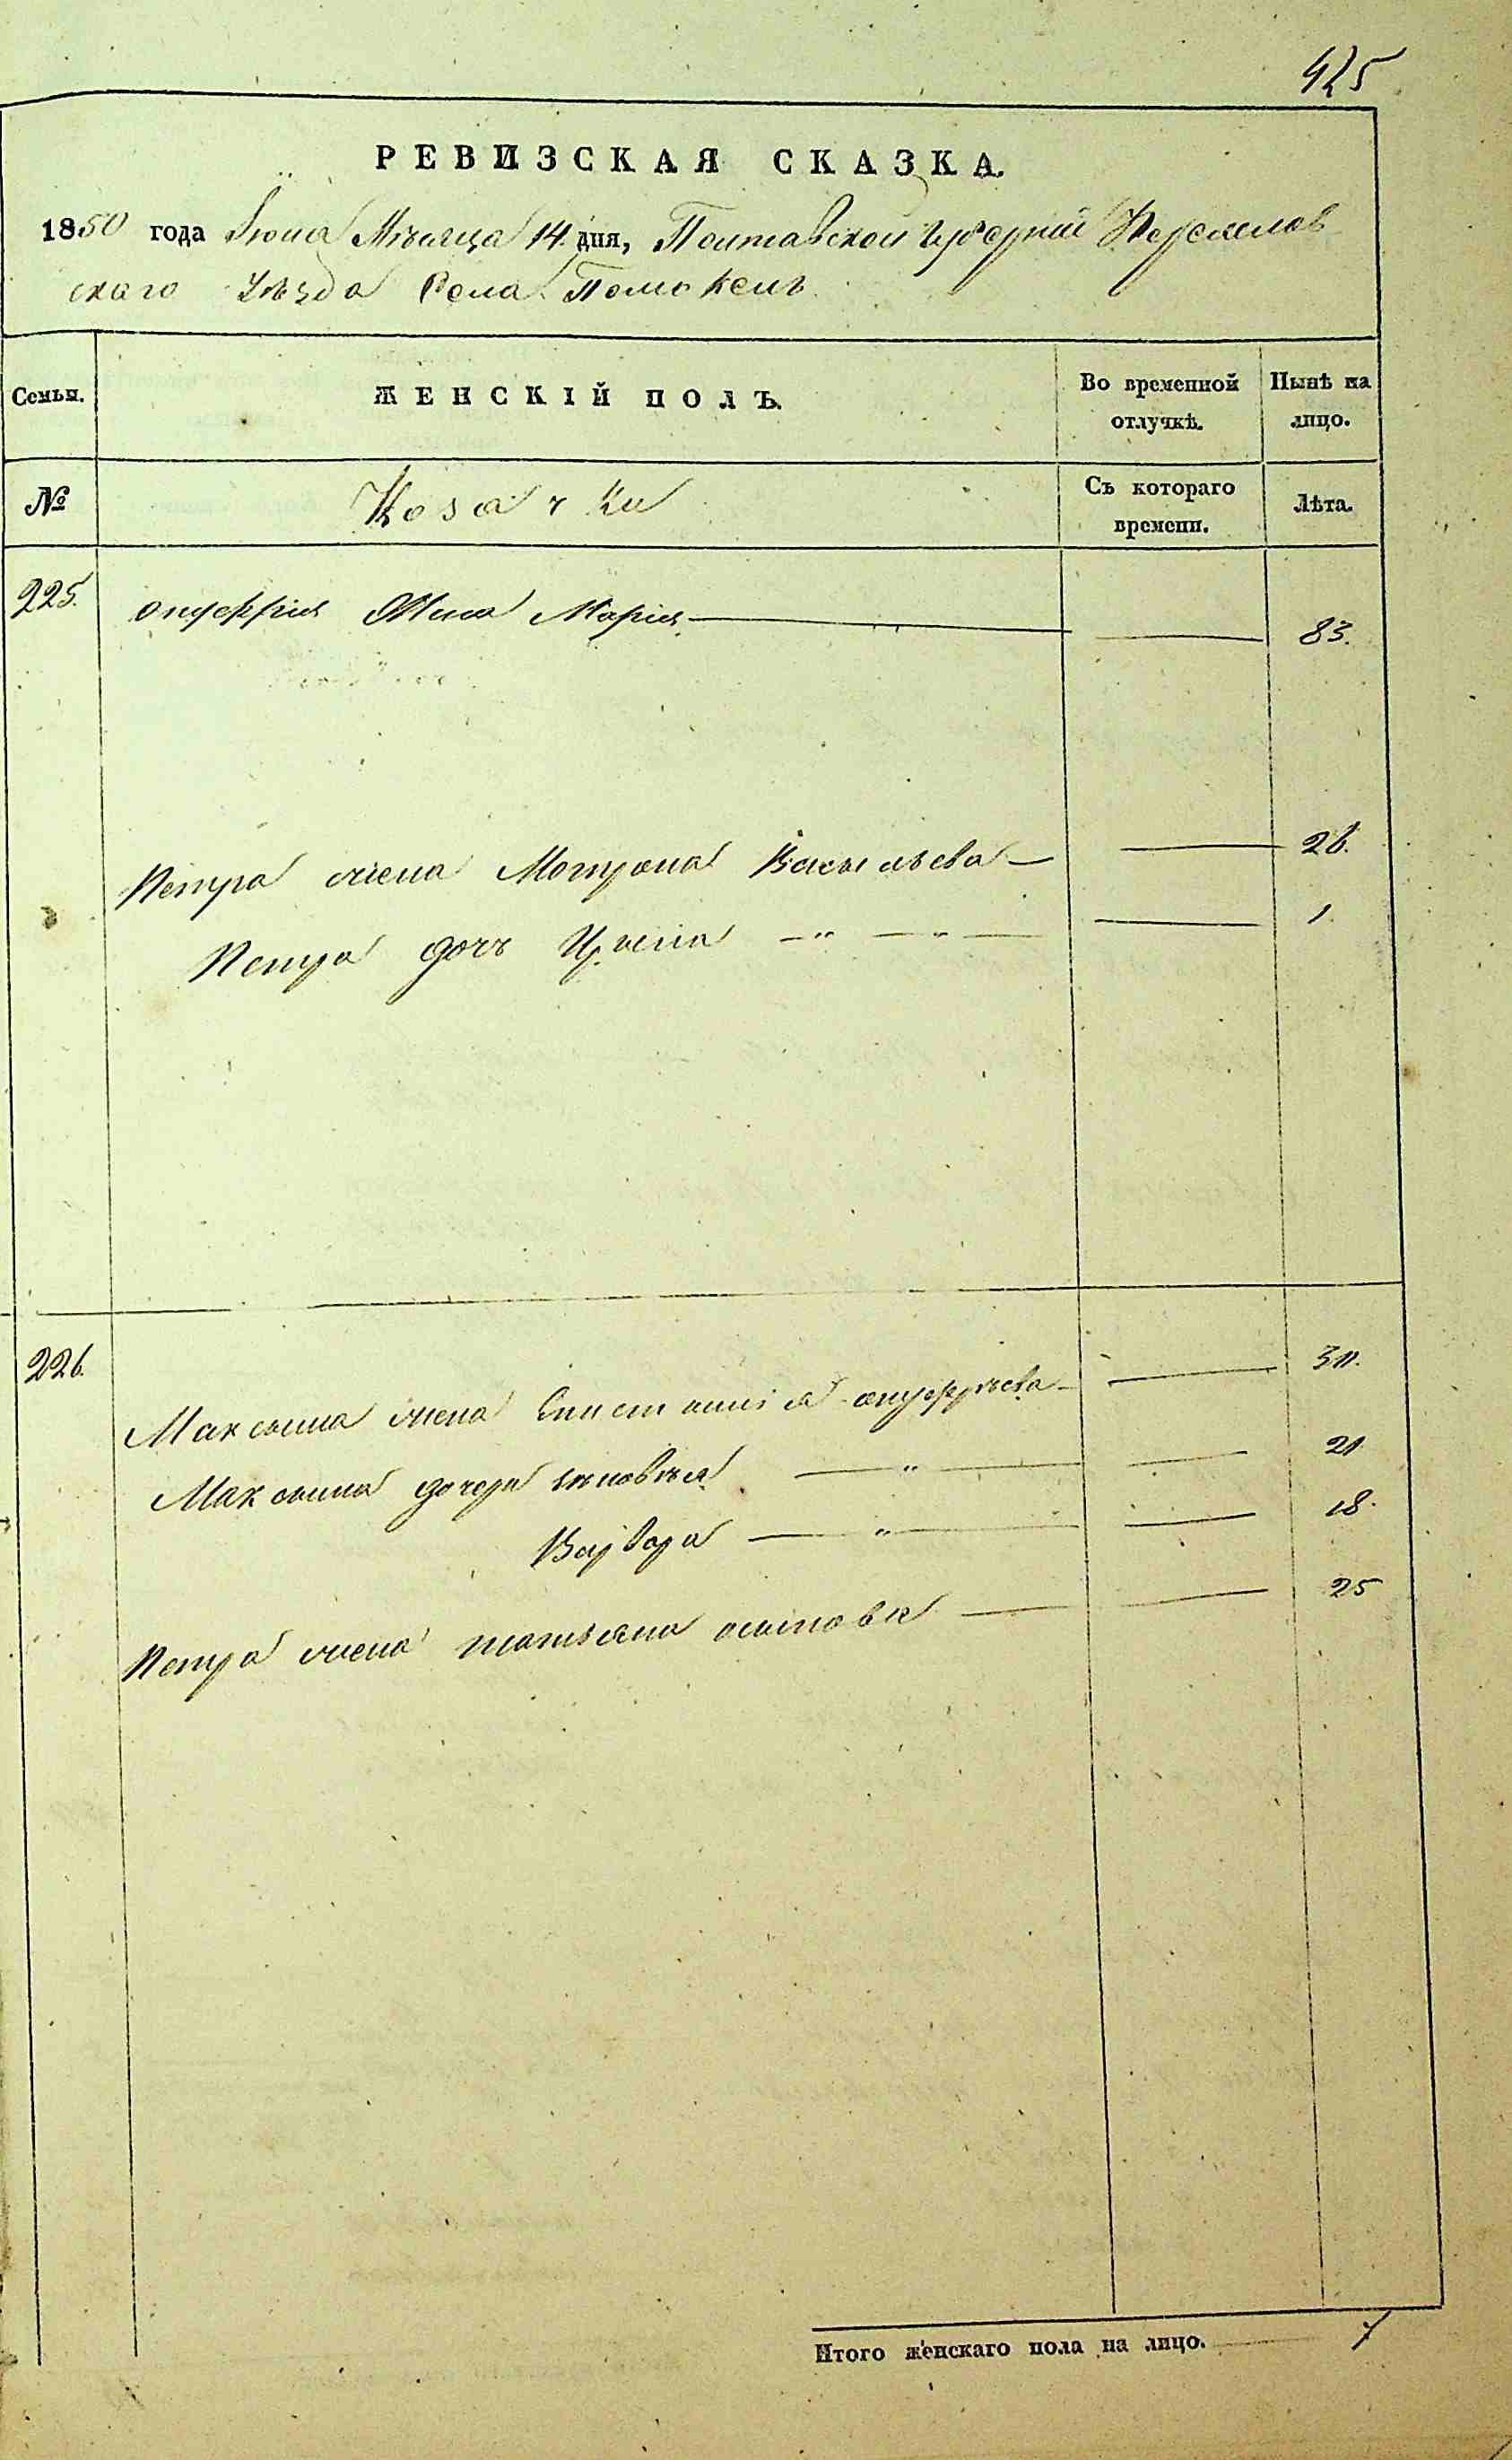 425
РЕВИЗСКАЯ СКАЗКА.
1850 года Июня Мѣсяца 14 дня, Полтавской Губерніи Переяслов
скаго уѣзда Села Помоклей
Семьи.
ЖЕНСКІЙ ПОЛЪ.
Во временной отлучкѣ.
Нынѣ на лицо.
№
Козачки
Съ котораго времени.
Лѣта.
225. онуфрія Жена Марія 83.
Петра жена Мотрона Васильева 26.
Петра дочь 1.
226.
Максима жена онуфріева
Максима дочери 21
Варвара 18.
Петра жена татьяна осипова 25
Итого женскаго пола на лицо. 7